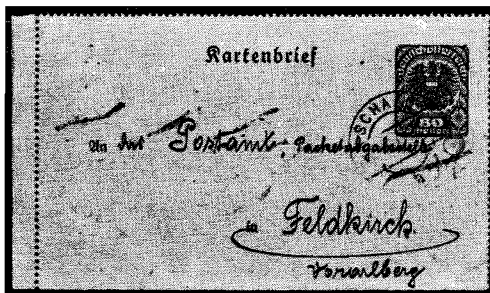 Kartenbrief
SCHA
80
An das Postamt, Packetabgabestelle
in Feldkirch
Vorarlberg